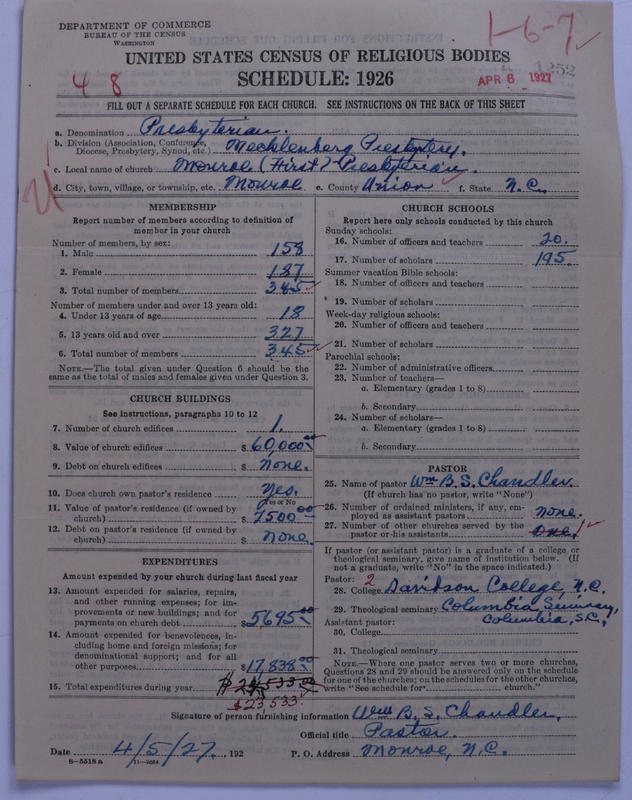 DEPARTMENT OF COMMERCE
BUREAU OF THE CENSUS
WASHINGTON
1-6-7
1252
APR 6 1927
UNITED STATES CENSUS OF RELIGIOUS BODIES
SCHEDULE: 1926
4 8
FILL OUT A SEPARATE SCHEDULE FOR EACH CHURCH. SEE INSTRUCTIONS ON THE BACK OF THIS SHEET
a. Denomination Presbyterian.
b. Division (Association, Conference, Diocese, Presbytery, Synod, etc.) Mecklenberg Presbytery.
c. Local name of church Monroe (First) Presbyterian.
d. City, town, village, or township, etc. Monroe e. County Union f. State N.C.
MEMBERSHIP
Report number of members according to definition of
member in your church
Number of members, by sex:
1. Male 158
2. Female 187
3. Total number of members 345
Number of members under and over 13 years old:
4. Under 13 years of age 18
5. 13 years old and over 327
6. Total number of members 345
NOTE.—The total given under Question 6 should be the
same as the total of males and females given under Question 3.
CHURCH BUILDINGS
See instructions, paragraphs 10 to 12
7. Number of church edifices 1.
8. Value of church edifices $ 60,000 00
9. Debt on church edifices $ None.
10. Does church own pastor's residence Yes.
Yes or No
11. Value of pastor's residence (if owned by
church) $ 7500 00
12. Debt on pastor's residence (if owned by
church) $ None
EXPENDITURES
Amount expended by your church during last fiscal year
13. Amount expended for salaries, repairs,
and other running expenses; for im-
provements or new buildings; and for
payments on church debt $ 5695 00
14. Amount expended for benevolences, in-
cluding home and foreign missions; for
denominational support; and for all
other purposes $ 17,838 00
15. Total expenditures during year
$23533
CHURCH SCHOOLS
Report here only schools conducted by this church
Sunday schools:
16. Number of officers and teachers 20.
17. Number of scholars 195.
Summer vacation Bible schools:
18. Number of officers and teachers
19. Number of scholars
Week-day religious schools:
20. Number of officers and teachers
21. Number of scholars
Parochial schools:
22. Number of administrative officers
23. Number of teachers—
a. Elementary (grades 1 to 8)
b. Secondary
24. Number of scholars—
a. Elementary (grades 1 to 8)
b. Secondary
PASTOR
25. Name of pastor Wm B. S. Chandler
(If church has no pastor, write "None")
26. Number of ordained ministers, if any, em-
ployed as assistant pastors None.
27. Number of other churches served by the
pastor or his assistants One. 1
If pastor (or assistant pastor) is a graduate of a college or
theological seminary, give name of institution below. (If
not a graduate, write "No" in the space indicated.)
Pastor: 2
28. College Davidson College, N.C.
29. Theological seminary Columbia Seminary,
Assistant pastor: Columbia, S.C.
30. College
31. Theological seminary
NOTE.—Where one pastor serves two or more churches,
Questions 28 and 29 should be answered only on the schedule
for one of the churches; on the schedules for the other churches,
write "See schedule for church."
Signature of person furnishing information Wm B. S. Chandler,
Official title Pastor.
Date 4/5/27, 192 P. O. Address Monroe, N.C.
8—5518 a 11—9084